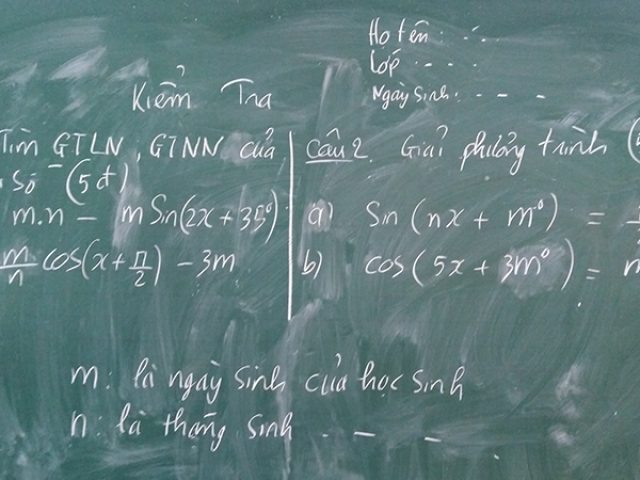 Họ tên:
Lớp
Ngày sinh:
Kiểm Tra
Tìm GTLN, GTNN của
số (5đ)
m.n - m Sin(2x + 35°)
m/n cos(x + π/2) - 3m
Câu 2. Giải phương trình (
a) Sin (nx + m°) =
b) cos (5x + 3m°) =
m: là ngày sinh của học sinh
n: là tháng sinh - -